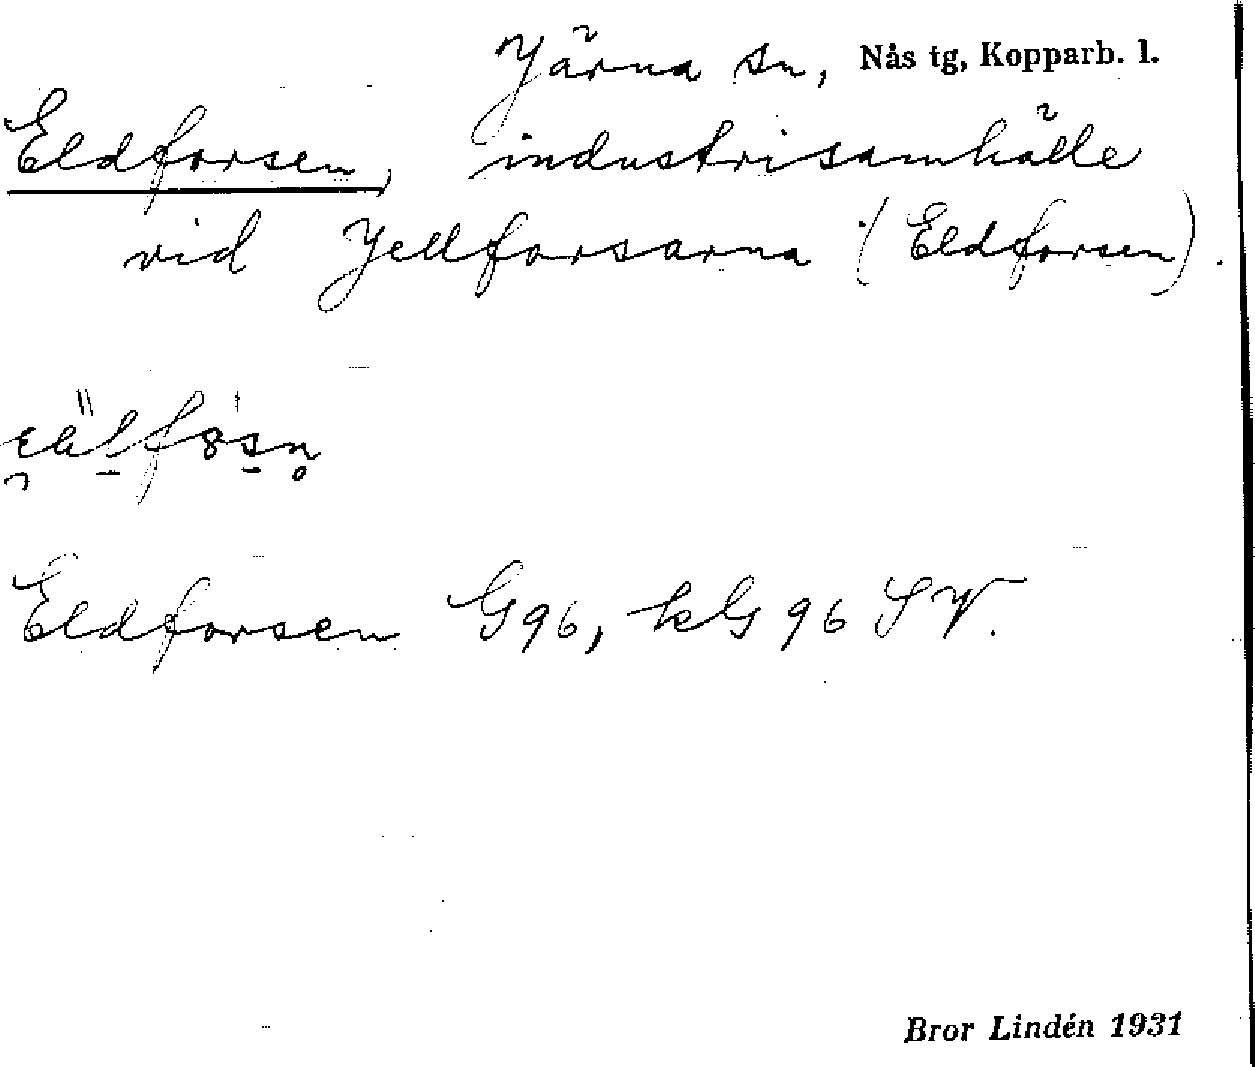 Järna sn, Nås tg, Kopparb. l.
Eldforsen, industrisamhälle
vid Jellforsarna (Eldforsen).
Eldforsen G96, kG 96 SV.
Bror Lindén 1931